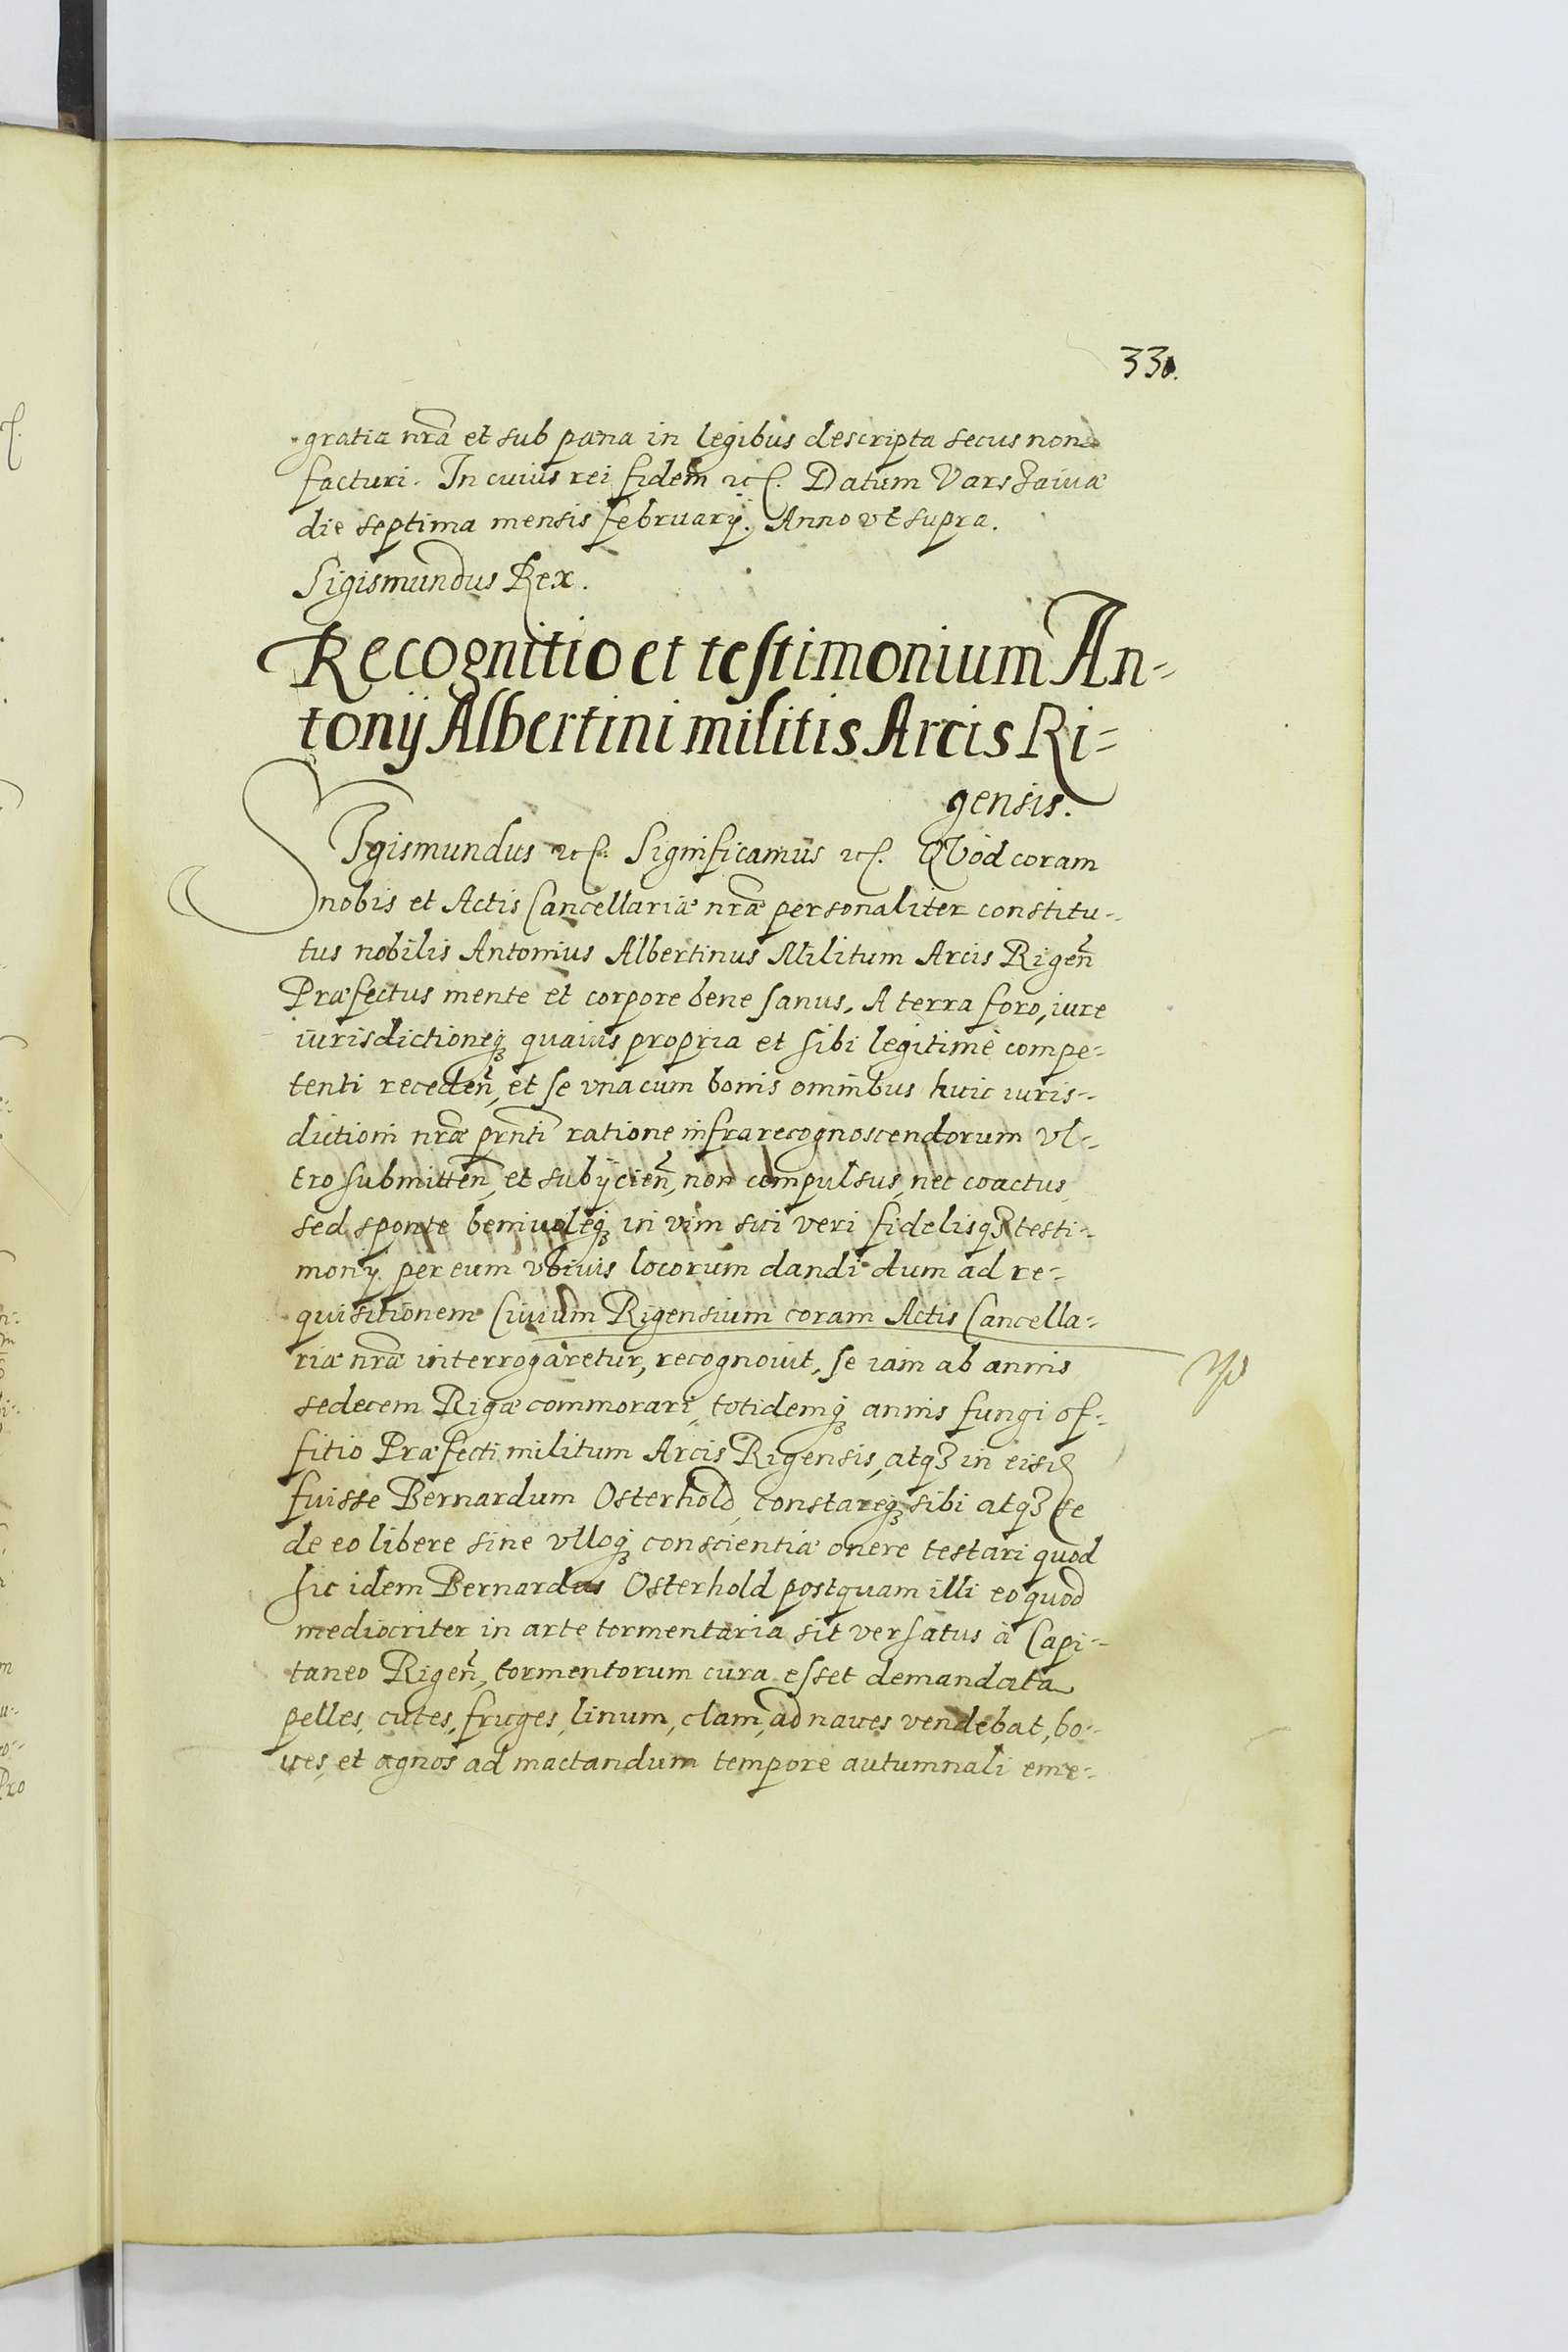 330.
gratia nrã et sub pæna in legibus descripta secus non
facturi. In cuius rei fidem etc. Datum Varsaiuæ
die septima mensis february. Anno vt supra.
Sigismundus Rex.
Recognitio et testimonium An=
tonij Albertini militis Arcis Ri=
gensis.
SIgismundus etc. Significamus etc. QVod coram
nobis et Actis Cancellariæ nræ personaliter constitu-
tus nobilis Antonius Albertinus Militum Arcis Rigen̄
Præfectus mente et corpore bene sanus, A terra foro, iure
iurisdictioneq; quauis propria et sibi legitimè compe-
tenti receden̄, et se vna cum bonis omnibus huic iuris-
dictioni nræ prn̄ti ratione infrarecognoscendorum vl-
tro submitten̄, et subijcien̄, non compulsus, nec coactus
sed sponte beniuoleq; in vim sui veri fidelisq; testi-
monij per eum vbiuis locorum dandi dum ad re-
quisitionem Ciuium Rigensium coram Actis Cancella-
riæ nræ interrogaretur, recognouit, se iam ab annis
sedecem Rigæ commorari, totidemq; annis fungi of-
fitio Præfecti militum Arcis Rigensis, atq; in eisd
fuisse Bernardum Osterhold, constareq; sibi atq; se
de eo libere sine vlloq; conscientiæ onere testari quod
sic idem Bernardus Osterhold postquam illi eo quod
mediocriter in arte tormentaria sit versatus à Capi-
taneo Rigen̄, tormentorum cura esset demandata
pelles, cutes, fruges, linum, clam, ad naues vendebat, bo-
ues, et agnos ad mactandum tempore autumnali eme-